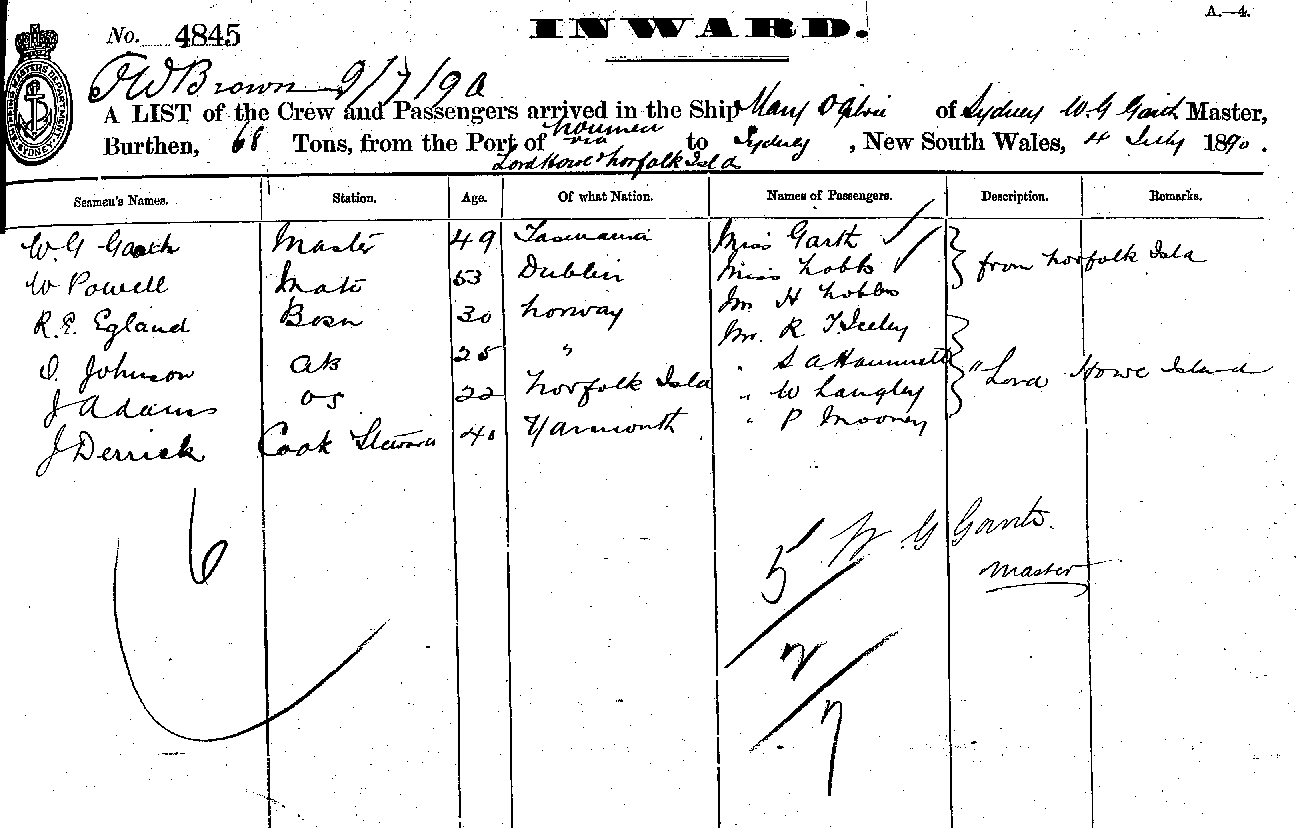 A.—4.
No. 4845
INWARD.
F W Brown 9/7/90
A LIST of the Crew and Passengers arrived in the Ship Mary Ogilvie of Sydney W. G Garth Master,
Burthen, 68 Tons, from the Port of Noumea via Lord Howe & Norfolk Isla to Sydney, New South Wales, 4 July 1890.
Seamen's Names. Station. Age. Of what Nation. Names of Passengers. Description. Remarks.
W G Garth Master 49 Tasmania Miss Garth
W Powell Mate 53 Dublin Miss Hobbs from Norfolk Isla
R. E. Egland Bosn 30 Norway Mr H Hobbs
Mr. R T Seeley
Johnson AB 25 " " S A
J Adams OS 22 Norfolk Isla " W Langley " Lord Howe Island
J Derrick Cook Steward 40 Yarmouth " P Mooney
6
5
W. G Garth
Master
2
7